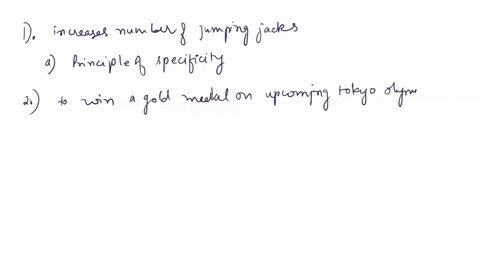 1). increases number of jumping jacks
a) Principle of specificity
2.) to win a gold medal on upcoming tokyo olym